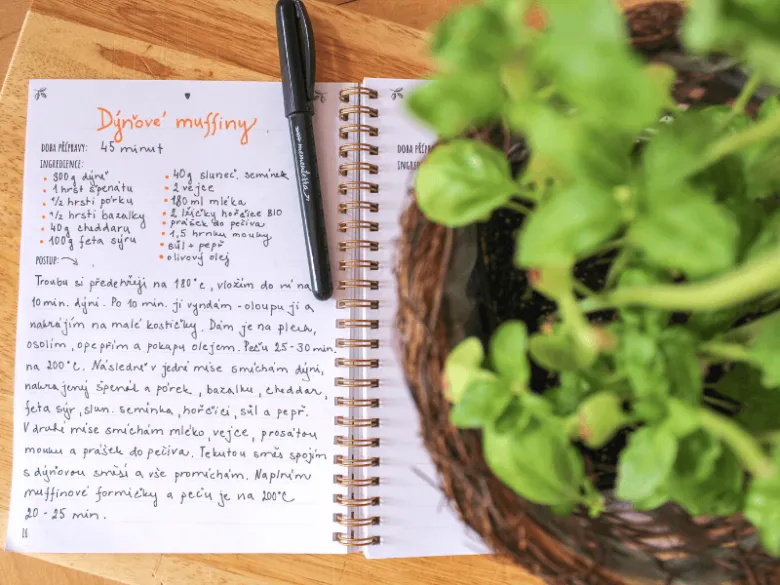 Dýňové muffiny
DOBA PŘÍPRAVY: 45 minut
INGREDIENCE:
800g dýně
1 hrst špenátu
1/2 hrsti pórku
1/2 hrsti bazalky
40g cheddaru
100g feta sýru
40g sluneč. semínek
2 vejce
180 ml mléka
2 lžičky hořčice BIO
prášek do pečiva
1,5 hrnku mouky
sůl + pepř
olivový olej
POSTUP:
Troubu si předehřeji na 180°C, vložím do ní na
10 min. dýni. Po 10 min. ji vyndám - oloupu ji a
nakrájím na malé kostičky. Dám je na plech,
osolím, opepřím a pokapu olejem. Peču 25-30 min.
na 200°C. Následně v jedné míse smíchám dýni,
nakrájený špenát a pórek, bazalku, cheddar,
feta sýr, slun. semínka, hořčici, sůl a pepř.
V druhé míse smíchám mléko, vejce, prosátou
mouku a prášek do pečiva. Tekutou směs spojím
s dýňovou směsí a vše promíchám. Naplním
muffinové formičky a peču je na 200°C
20-25 min.
16
DOBA PŘÍPR
INGRED